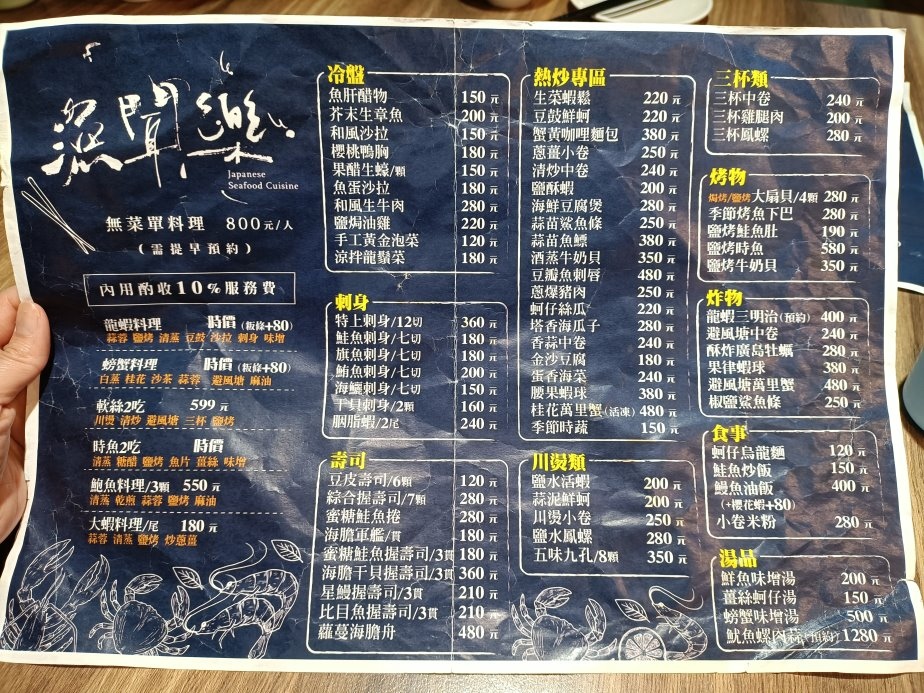 漁聞樂
Japanese
Seafood Cuisine
無菜單料理 800元/人
(需提早預約)
內用酌收10%服務費
龍蝦料理 時價 (粄條+80)
蒜蓉 鹽烤 清蒸 豆鼓 沙拉 刺身 味增
螃蟹料理 時價 (粄條+80)
白蒸 桂花 沙茶 蒜蓉 避風塘 麻油
軟絲2吃 599元
川燙 清炒 避風塘 三杯 鹽烤
時魚2吃 時價
清蒸 糖醋 鹽烤 魚片 薑絲 味增
鮑魚料理/3顆 550元
清蒸 乾煎 蒜蓉 鹽烤 麻油
大蝦料理/尾 180元
蒜蓉 清蒸 鹽烤 炒蔥薑
冷盤
魚肝醋物 150元
芥末生章魚 200元
和風沙拉 150元
櫻桃鴨胸 180元
果醋生蠔/顆 150元
魚蛋沙拉 180元
和風生牛肉 280元
鹽焗油雞 220元
手工黃金泡菜 120元
涼拌龍鬚菜 180元
刺身
特上刺身/12切 360元
鮭魚刺身/七切 180元
旗魚刺身/七切 180元
鮪魚刺身/七切 200元
海鱺刺身/七切 150元
干貝刺身/2顆 160元
胭脂蝦/2尾 240元
壽司
豆皮壽司/6顆 120元
綜合握壽司/7顆 280元
蜜糖鮭魚捲 280元
海膽軍艦/貫 180元
蜜糖鮭魚握壽司/3貫 180元
海膽干貝握壽司/3貫 360元
星鰻握壽司/3貫 210元
比目魚握壽司/3貫 210元
蘿蔓海膽舟 480元
熱炒專區
生菜蝦鬆 220元
豆鼓鮮蚵 220元
蟹黃咖哩麵包 380元
蔥薑小卷 250元
清炒中卷 240元
鹽酥蝦 200元
海鮮豆腐煲 280元
蒜苗鯊魚條 250元
蒜苗魚鰾 380元
酒蒸牛奶貝 350元
豆瓣魚刺唇 480元
蔥爆豬肉 250元
蚵仔絲瓜 220元
塔香海瓜子 280元
香蒜中卷 240元
金沙豆腐 180元
蛋香海菜 240元
腰果蝦球 380元
桂花萬里蟹(活凍) 480元
季節時蔬 150元
川燙類
鹽水活蝦 200元
蒜泥鮮蚵 200元
川燙小卷 250元
鹽水鳳螺 280元
五味九孔/8顆 350元
三杯類
三杯中卷 240元
三杯雞腿肉 200元
三杯鳳螺 280元
烤物
焗烤/鹽烤 大扇貝/4顆 280元
季節烤魚下巴 280元
鹽烤鮭魚肚 190元
鹽烤時魚 580元
鹽烤牛奶貝 350元
炸物
龍蝦三明治(預約) 400元
避風塘中卷 240元
酥炸廣島牡蠣 280元
果律蝦球 380元
避風塘萬里蟹 480元
椒鹽鯊魚條 250元
食事
蚵仔烏龍麵 120元
鮭魚炒飯 150元
鰻魚油飯 400元
(+櫻花蝦+80)
小卷米粉 280元
湯品
鮮魚味增湯 200元
薑絲蚵仔湯 150元
螃蟹味增湯 500元
魷魚螺肉蒜(預約) 1280元